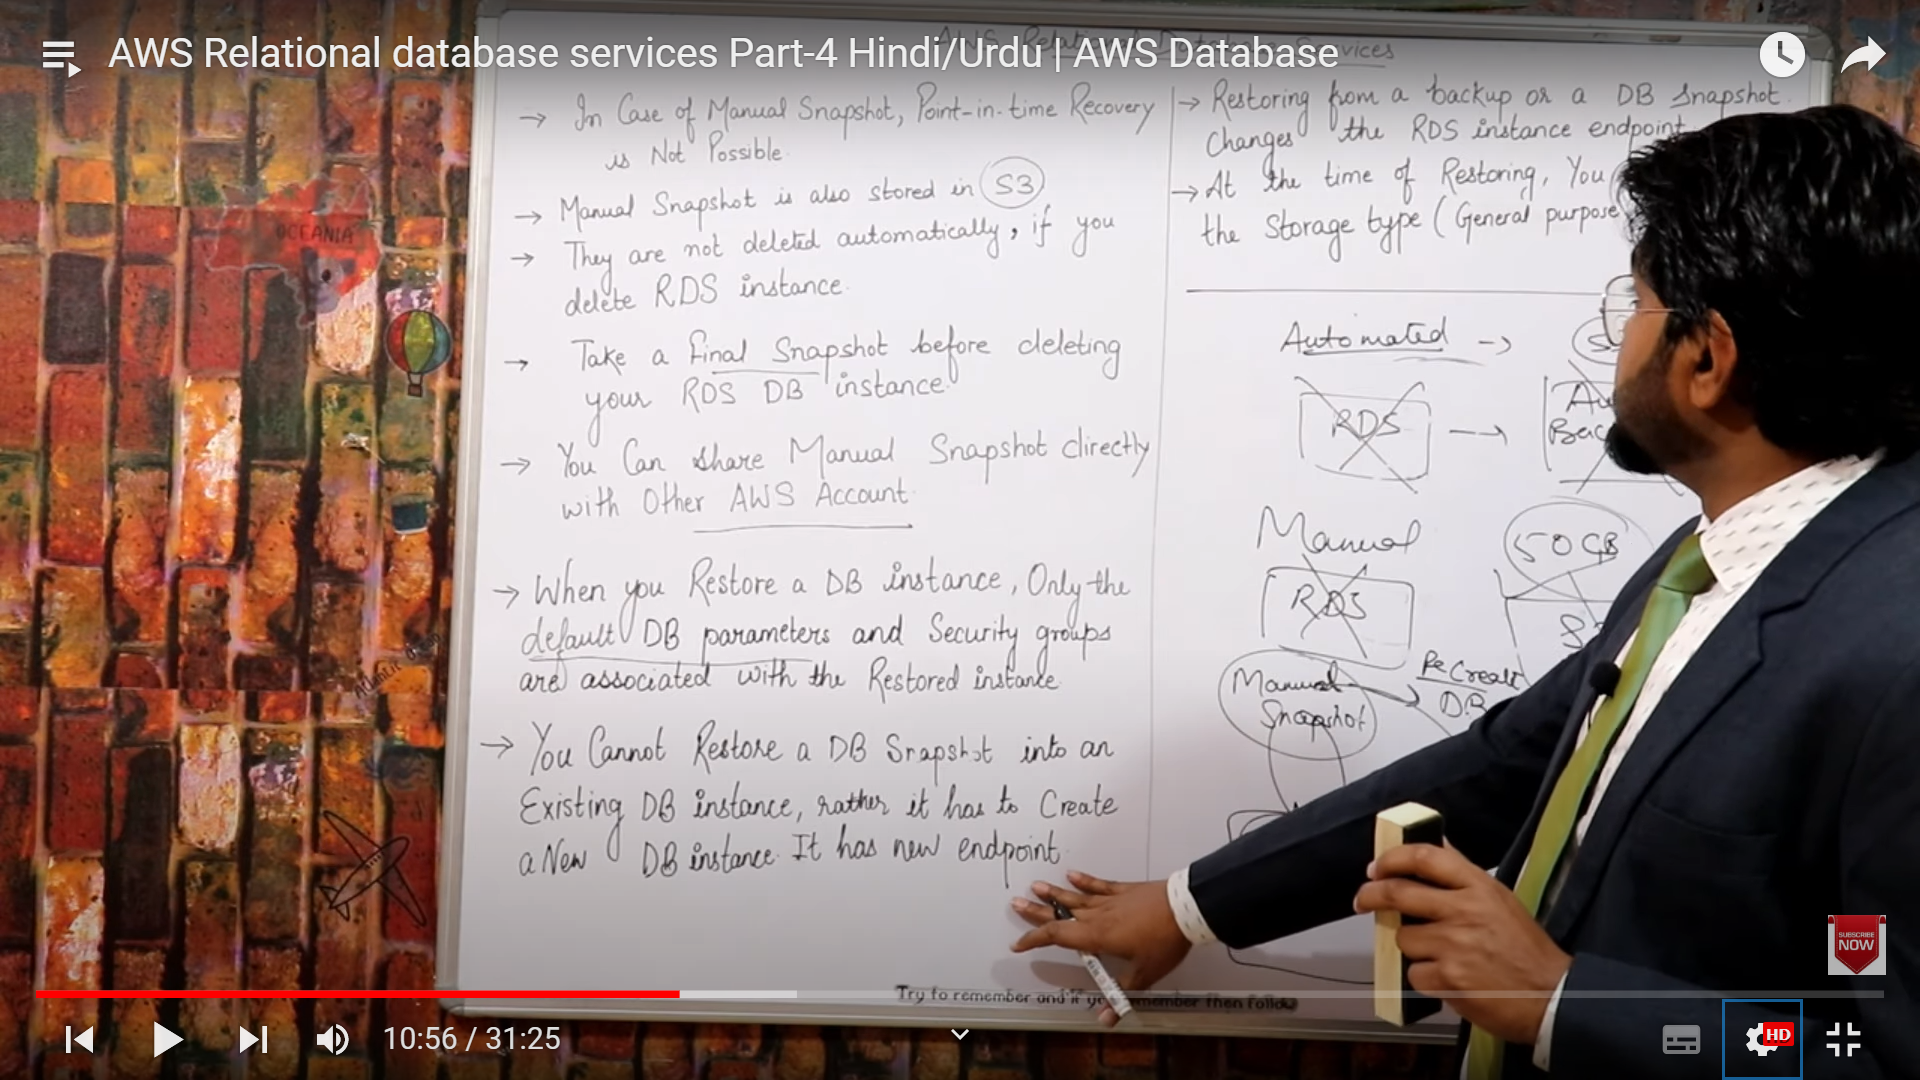 AWS Relational database services Part-4 Hindi/Urdu | AWS Database
AWS Relational Database Services
→ In Case of Manual Snapshot, Point-in-time Recovery
is Not Possible.
→ Manual Snapshot is also stored in S3
→ They are not deleted automatically, if you
delete RDS instance.
→ Take a final Snapshot before deleting
your RDS DB instance.
→ You Can share Manual Snapshot directly
with Other AWS Account.
→ When you Restore a DB instance, Only the
default DB parameters and Security groups
are associated with the Restored instance.
→ You Cannot Restore a DB Snapshot into an
Existing DB instance, rather it has to Create
a New DB instance. It has new endpoint.
→ Restoring from a backup or a DB Snapshot
changes the RDS instance endpoint
→ At the time of Restoring, You
the Storage type (General purpose
Automated →
RDS →
Manual
50 GB
RDS
Manual
Snapshot
ReCreate
DB
OCEANIA
Atlantic
Try to remember and if
remember then follow
SUBSCRIBE
NOW
10:56 / 31:25
HD